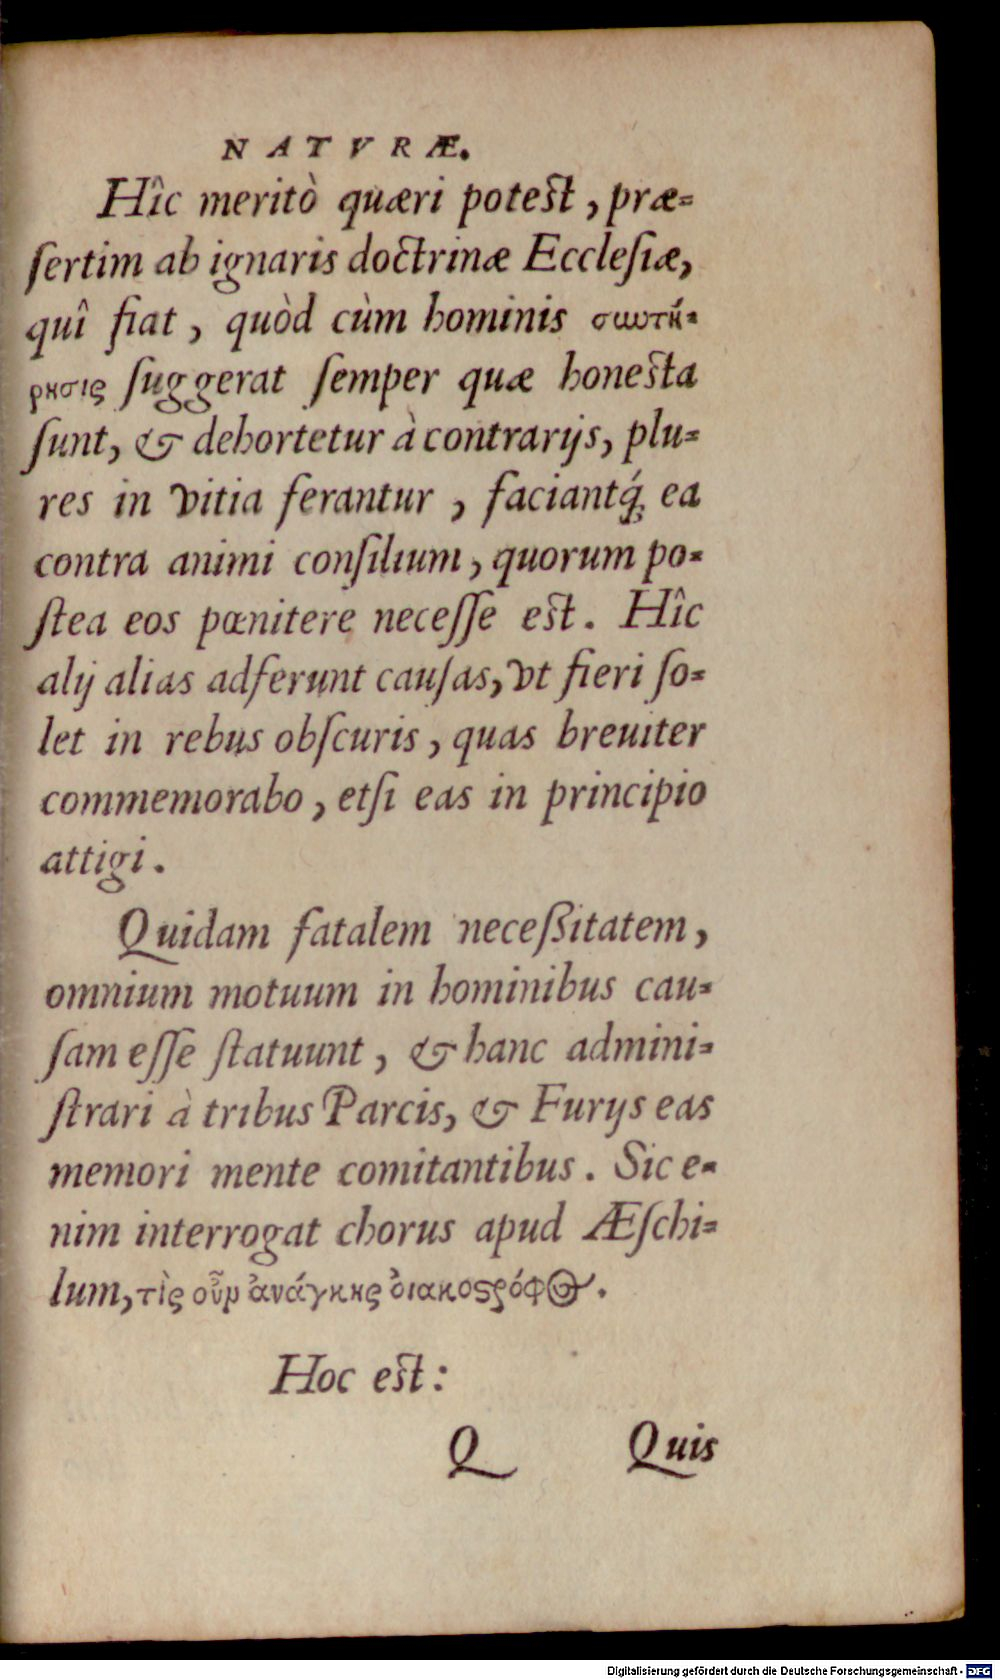 NATVRÆ.
Hîc meritò quæri potest, præ=
sertim ab ignaris doctrinæ Ecclesiæ,
quî fiat, quòd cùm hominis σωτή=
ρησις suggerat semper quæ honesta
sunt, & dehortetur à contrarijs, plu=
res in vitia ferantur, faciantq́; ea
contra animi consilium, quorum po=
stea eos pœnitere necesse est. Hîc
alij alias adferunt causas, vt fieri so=
let in rebus obscuris, quas breuiter
commemorabo, etsi eas in principio
attigi.
Quidam fatalem neceßitatem,
omnium motuum in hominibus cau=
sam esse statuunt, & hanc admini=
strari à tribus Parcis, & Furijs eas
memori mente comitantibus. Sic e=
nim interrogat chorus apud Æschi=
lum, τὶς οὖμ ἀνάγκης ὀιακοστρόφος.
Hoc est:
Q Quis
Digitalisierung gefördert durch die Deutsche Forschungsgemeinschaft - DFG